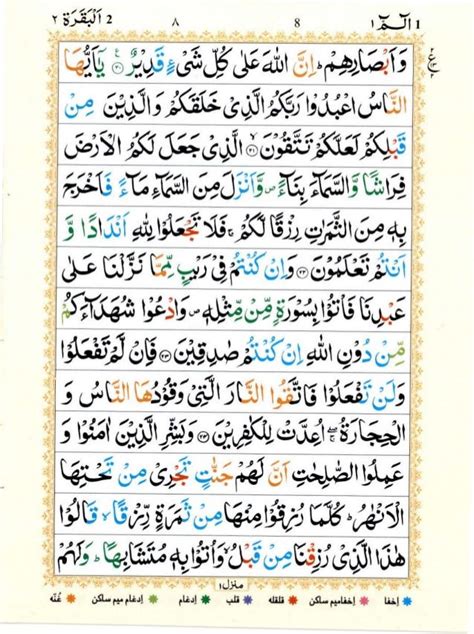 البقرة ٢ 2 ٨ 8 الٓمّٓ ١ 1
وَاَبْصَارِهِمْ ؕ اِنَّ اللّٰهَ عَلٰی كُلِّ شَیْءٍ قَدِیْرٌ ۟۲۰ یٰۤاَیُّهَا
النَّاسُ اعْبُدُوْا رَبَّكُمُ الَّذِیْ خَلَقَكُمْ وَالَّذِیْنَ مِنْ
قَبْلِكُمْ لَعَلَّكُمْ تَتَّقُوْنَ ۟ۙ۲۱ الَّذِیْ جَعَلَ لَكُمُ الْاَرْضَ
فِرَاشًا وَّالسَّمَآءَ بِنَآءً ۪ وَّاَنْزَلَ مِنَ السَّمَآءِ مَآءً فَاَخْرَجَ
بِهٖ مِنَ الثَّمَرٰتِ رِزْقًا لَّكُمْ ۚ فَلَا تَجْعَلُوْا لِلّٰهِ اَنْدَادًا وَّ
اَنْتُمْ تَعْلَمُوْنَ ۟۲۲ وَاِنْ كُنْتُمْ فِیْ رَیْبٍ مِّمَّا نَزَّلْنَا عَلٰی
عَبْدِنَا فَاْتُوْا بِسُوْرَةٍ مِّنْ مِّثْلِهٖ ۪ وَادْعُوْا شُهَدَآءَكُمْ
مِّنْ دُوْنِ اللّٰهِ اِنْ كُنْتُمْ صٰدِقِیْنَ ۟۲۳ فَاِنْ لَّمْ تَفْعَلُوْا
وَلَنْ تَفْعَلُوْا فَاتَّقُوا النَّارَ الَّتِیْ وَقُوْدُهَا النَّاسُ وَ
الْحِجَارَةُ ۖۚ اُعِدَّتْ لِلْكٰفِرِیْنَ ۟۲۴ وَبَشِّرِ الَّذِیْنَ اٰمَنُوْا وَ
عَمِلُوا الصّٰلِحٰتِ اَنَّ لَهُمْ جَنّٰتٍ تَجْرِیْ مِنْ تَحْتِهَا
الْاَنْهٰرُ ؕ كُلَّمَا رُزِقُوْا مِنْهَا مِنْ ثَمَرَةٍ رِّزْقًا ۙ قَالُوْا
هٰذَا الَّذِیْ رُزِقْنَا مِنْ قَبْلُ وَاُتُوْا بِهٖ مُتَشَابِهًا ؕ وَلَهُمْ
منزل ۱
اخفا اخفامیم ساکن قلقلہ قلب ادغام ادغام میم ساکن غنّہ